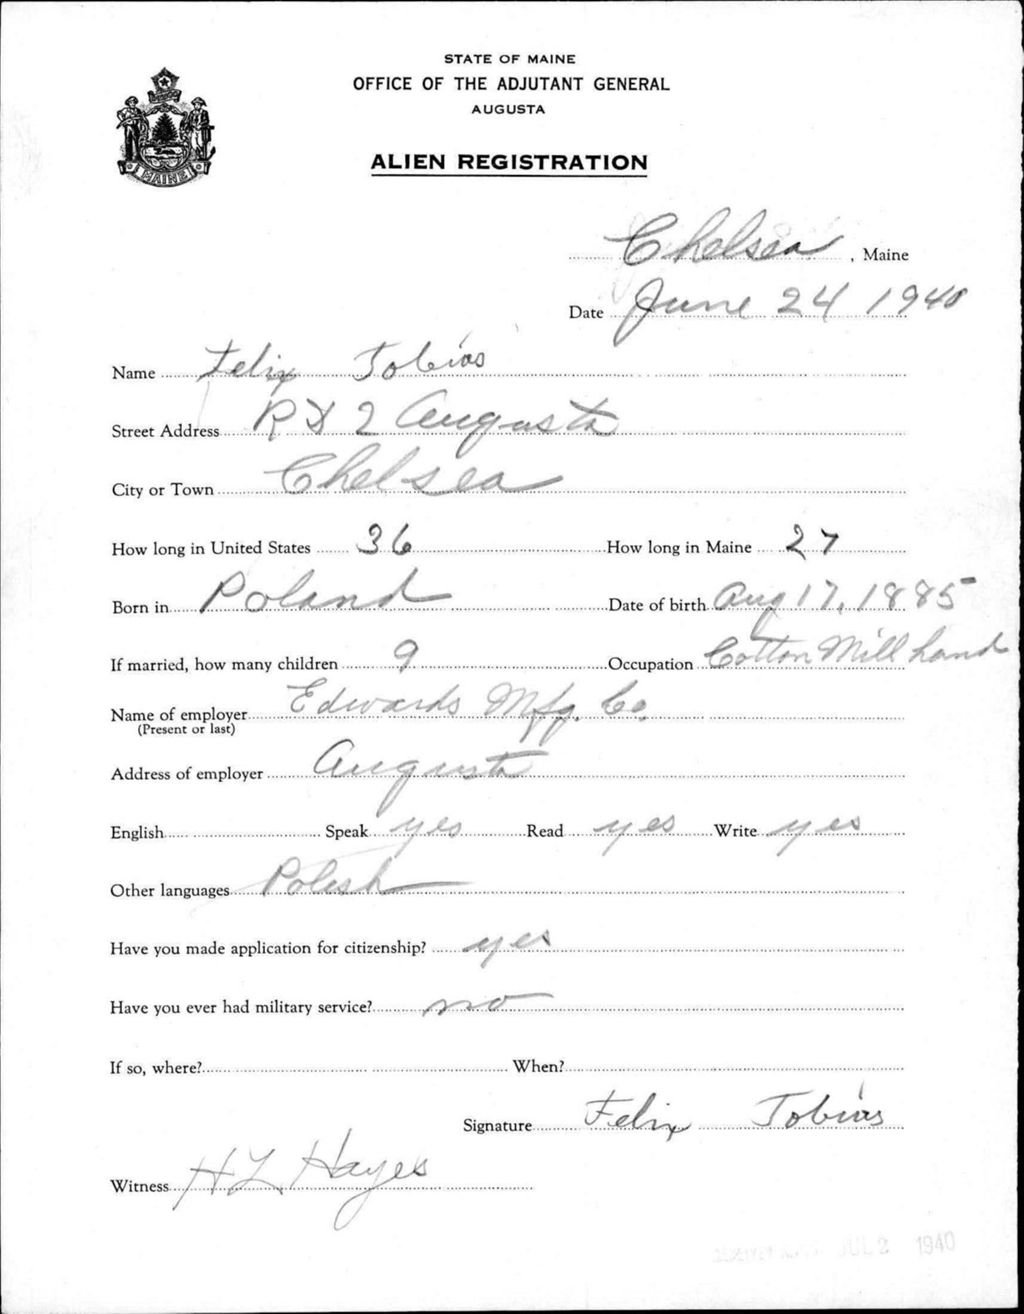 STATE OF MAINE
OFFICE OF THE ADJUTANT GENERAL
AUGUSTA
ALIEN REGISTRATION
MAINE
Chelsea, Maine
Date June 24 1940
Name Felix Tobias
Street Address RD 2 Augusta
City or Town Chelsea
How long in United States 36 How long in Maine 27
Born in Poland Date of birth Aug 17, 1885
If married, how many children 9 Occupation Cotton Mill hand
Name of employer Edwards Mfg. Co.
(Present or last)
Address of employer Augusta
English Speak yes Read yes Write yes
Other languages Polish
Have you made application for citizenship? yes
Have you ever had military service? no
If so, where? When?
Signature Felix Tobias
Witness H L Hayes
JUL 2 1940